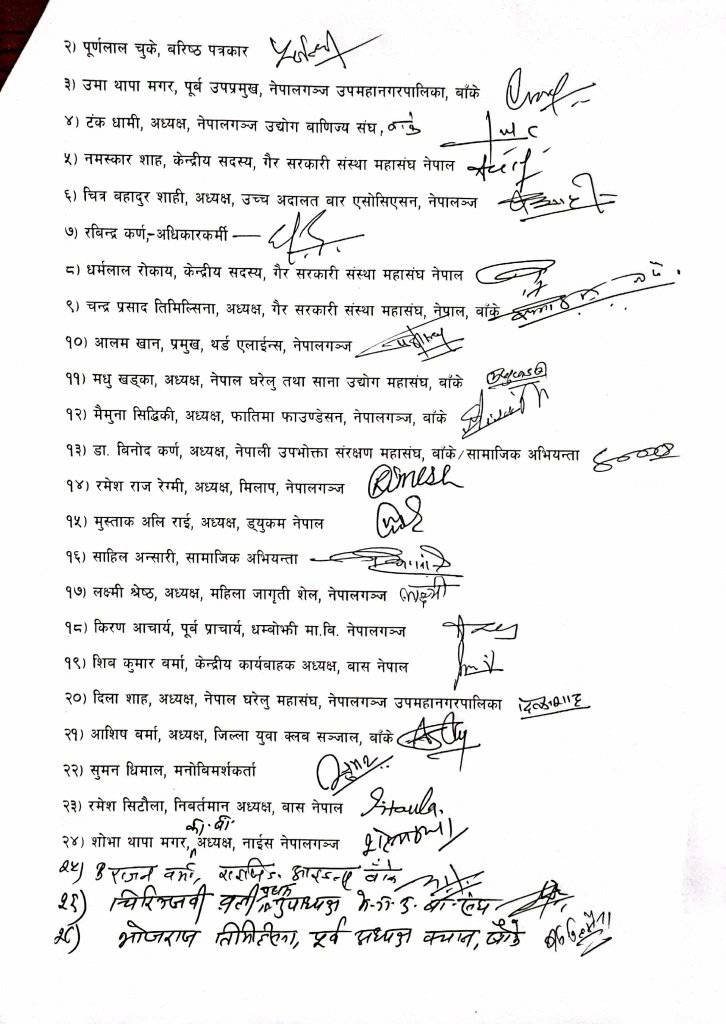 २) पूर्णलाल चुके, बरिष्ठ पत्रकार
३) उमा थापा मगर, पूर्व उपप्रमुख, नेपालगञ्ज उपमहानगरपालिका, बाँके
४) टंक धामी, अध्यक्ष, नेपालगञ्ज उद्योग बाणिज्य संघ, बाँके
५) नमस्कार शाह, केन्द्रीय सदस्य, गैर सरकारी संस्था महासंघ नेपाल
६) चित्र बहादुर शाही, अध्यक्ष, उच्च अदालत बार एसोसिएसन, नेपालञ्ज
७) रबिन्द्र कर्ण, अधिकारकर्मी
८) धर्मलाल रोकाय, केन्द्रीय सदस्य, गैर सरकारी संस्था महासंघ नेपाल
९) चन्द्र प्रसाद तिमिल्सिना, अध्यक्ष, गैर सरकारी संस्था महासंघ, नेपाल, बाँके
१०) आलम खान, प्रमुख, थर्ड एलाईन्स, नेपालगञ्ज
११) मधु खड्का, अध्यक्ष, नेपाल घरेलु तथा साना उद्योग महासंघ, बाँके
१२) मैमुना सिद्धिकी, अध्यक्ष, फातिमा फाउण्डेसन, नेपालगञ्ज, बाँके
१३) डा. बिनोद कर्ण, अध्यक्ष, नेपाली उपभोक्ता संरक्षण महासंघ, बाँके/सामाजिक अभियन्ता
१४) रमेश राज रेग्मी, अध्यक्ष, मिलाप, नेपालगञ्ज Ramesh
१५) मुस्ताक अलि राई, अध्यक्ष, ड्युकम नेपाल
१६) साहिल अन्सारी, सामाजिक अभियन्ता
१७) लक्ष्मी श्रेष्ठ, अध्यक्ष, महिला जागृती शेल, नेपालगञ्ज लक्ष्मी
१८) किरण आचार्य, पूर्व प्राचार्य, धम्बोझी मा.बि. नेपालगञ्ज
१९) शिव कुमार बर्मा, केन्द्रीय कार्यबाहक अध्यक्ष, बास नेपाल
२०) दिला शाह, अध्यक्ष, नेपाल घरेलु महासंघ, नेपालगञ्ज उपमहानगरपालिका दिलाशाह
२१) आशिष बर्मा, अध्यक्ष, जिल्ला युवा क्लब सञ्जाल, बाँके
२२) सुमन धिमाल, मनोबिमर्शकर्ता
२३) रमेश सिटौला, निवर्तमान अध्यक्ष, बास नेपाल Sitaula
२४) शोभा थापा मगर, का.बा. अध्यक्ष, नाईस नेपालगञ्ज
२५) राजन वर्मा,
२६) चिरिञ्जवी वली
भोजराज तिमिल्सिना, पूर्व अध्यक्ष क्यान, बाँके